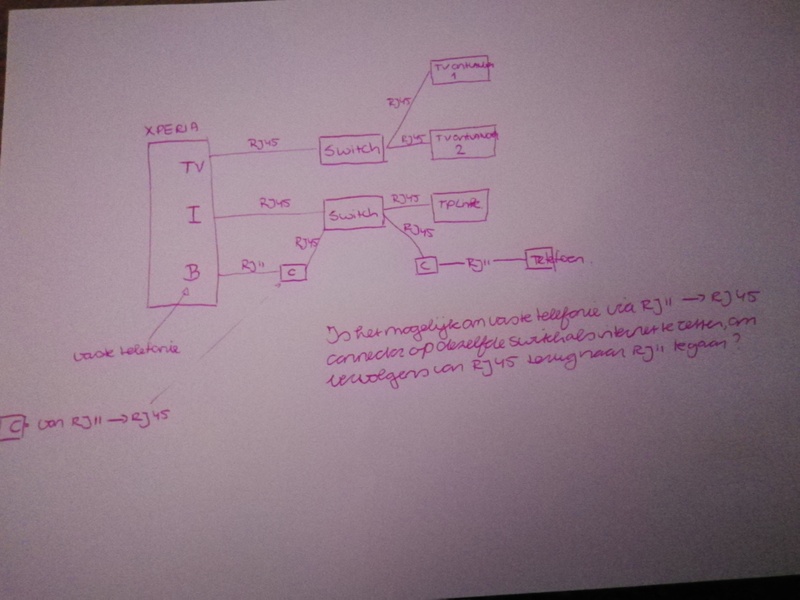 XPERIA
TV
I
B
RJ45
Switch
RJ45
TV ontvanger
1
RJ45
TV ontvanger
2
RJ45
Switch
RJ45
TPLink
RJ45
RJ45
RJ11
C
C
RJ11
Telefoon.
vaste telefonie
C van RJ11 → RJ45
Is het mogelijk om vaste telefonie via RJ11 → RJ45
connector op dezelfde switch als internet te zetten, om
vervolgens van RJ45 terug naar RJ11 te gaan?